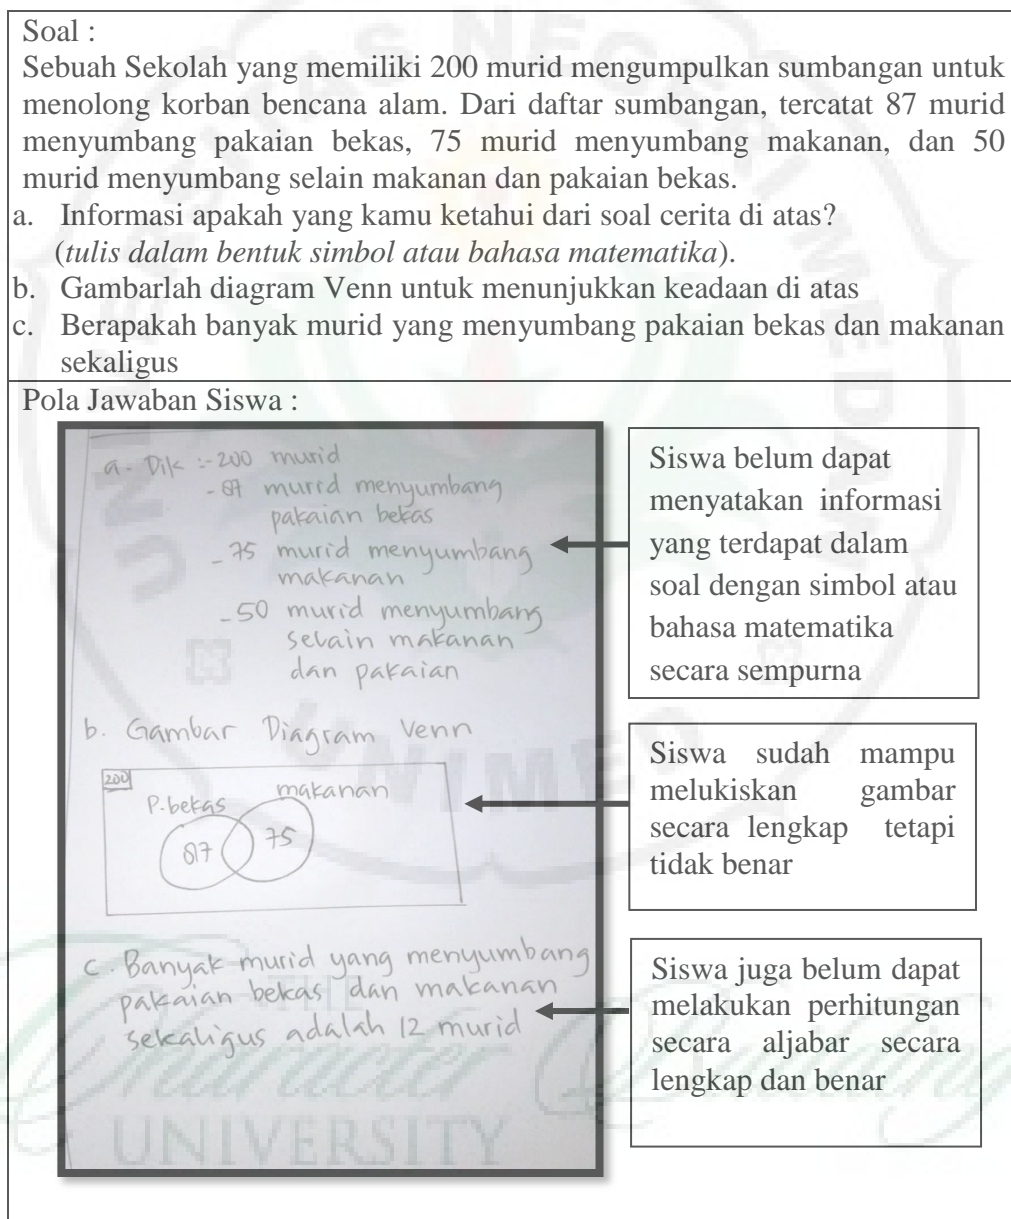 Soal :
Sebuah Sekolah yang memiliki 200 murid mengumpulkan sumbangan untuk
menolong korban bencana alam. Dari daftar sumbangan, tercatat 87 murid
menyumbang pakaian bekas, 75 murid menyumbang makanan, dan 50
murid menyumbang selain makanan dan pakaian bekas.
a. Informasi apakah yang kamu ketahui dari soal cerita di atas?
(tulis dalam bentuk simbol atau bahasa matematika).
b. Gambarlah diagram Venn untuk menunjukkan keadaan di atas
c. Berapakah banyak murid yang menyumbang pakaian bekas dan makanan
sekaligus
Pola Jawaban Siswa :
a. Dik :- 200 murid
- 87 murid menyumbang
pakaian bekas
- 75 murid menyumbang
makanan
- 50 murid menyumbang
selain makanan
dan pakaian
b. Gambar Diagram Venn
200
P.bekas makanan
87 75
c. Banyak murid yang menyumbang
pakaian bekas dan makanan
sekaligus adalah 12 murid
Siswa belum dapat
menyatakan informasi
yang terdapat dalam
soal dengan simbol atau
bahasa matematika
secara sempurna
Siswa sudah mampu
melukiskan gambar
secara lengkap tetapi
tidak benar
Siswa juga belum dapat
melakukan perhitungan
secara aljabar secara
lengkap dan benar
UNIVERSITAS NEGERI MEDAN
UNIMED
THE
Character Building
UNIVERSITY